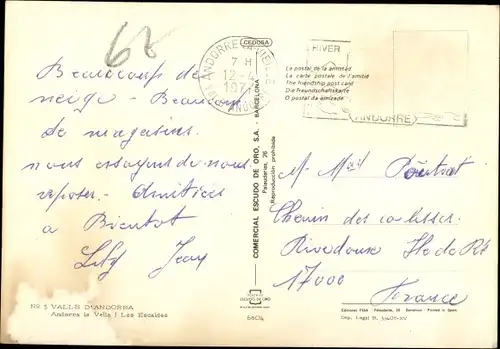 68
CEDOSA
ANDORRE LA VIEILLE
7 H
12-4
197
HIVER
ANDORRE
La postal de la amistad
La carte postale de l'amitié
The friendship post card
Die Freundschaftskarte
O postal da amizade
Beaucoup de
neige - Beaucoup
de magasins.
nous essayons de nous
reposer - Amitiés
a Bientot
Lily Jean
COMERCIAL ESCUDO DE ORO, S.A. - BARCELONA
Palaudarias, 26
Reproducción prohibida
M - Mme
Chemin des
Rivedoux Ile de Ré
17000
France
Nº 5 VALLS D'ANDORRA
Andorra la Vella i Les Escaldes
ESCUDO DE ORO
6804
Editiones FISA - Palaudarias, 26 - Barcelona - Printed in Spain
Dep. Legal B.